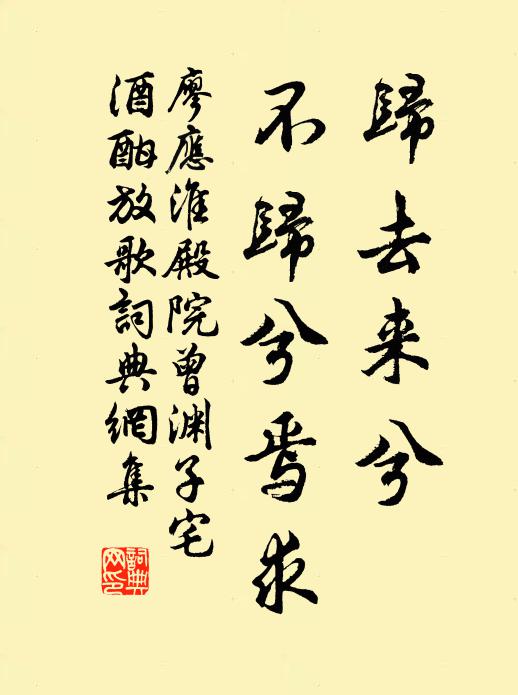 歸去来兮
不歸兮焉求
廖應淮殿院曾渊子宅
酒酣放歌詞典網集
詞典网印